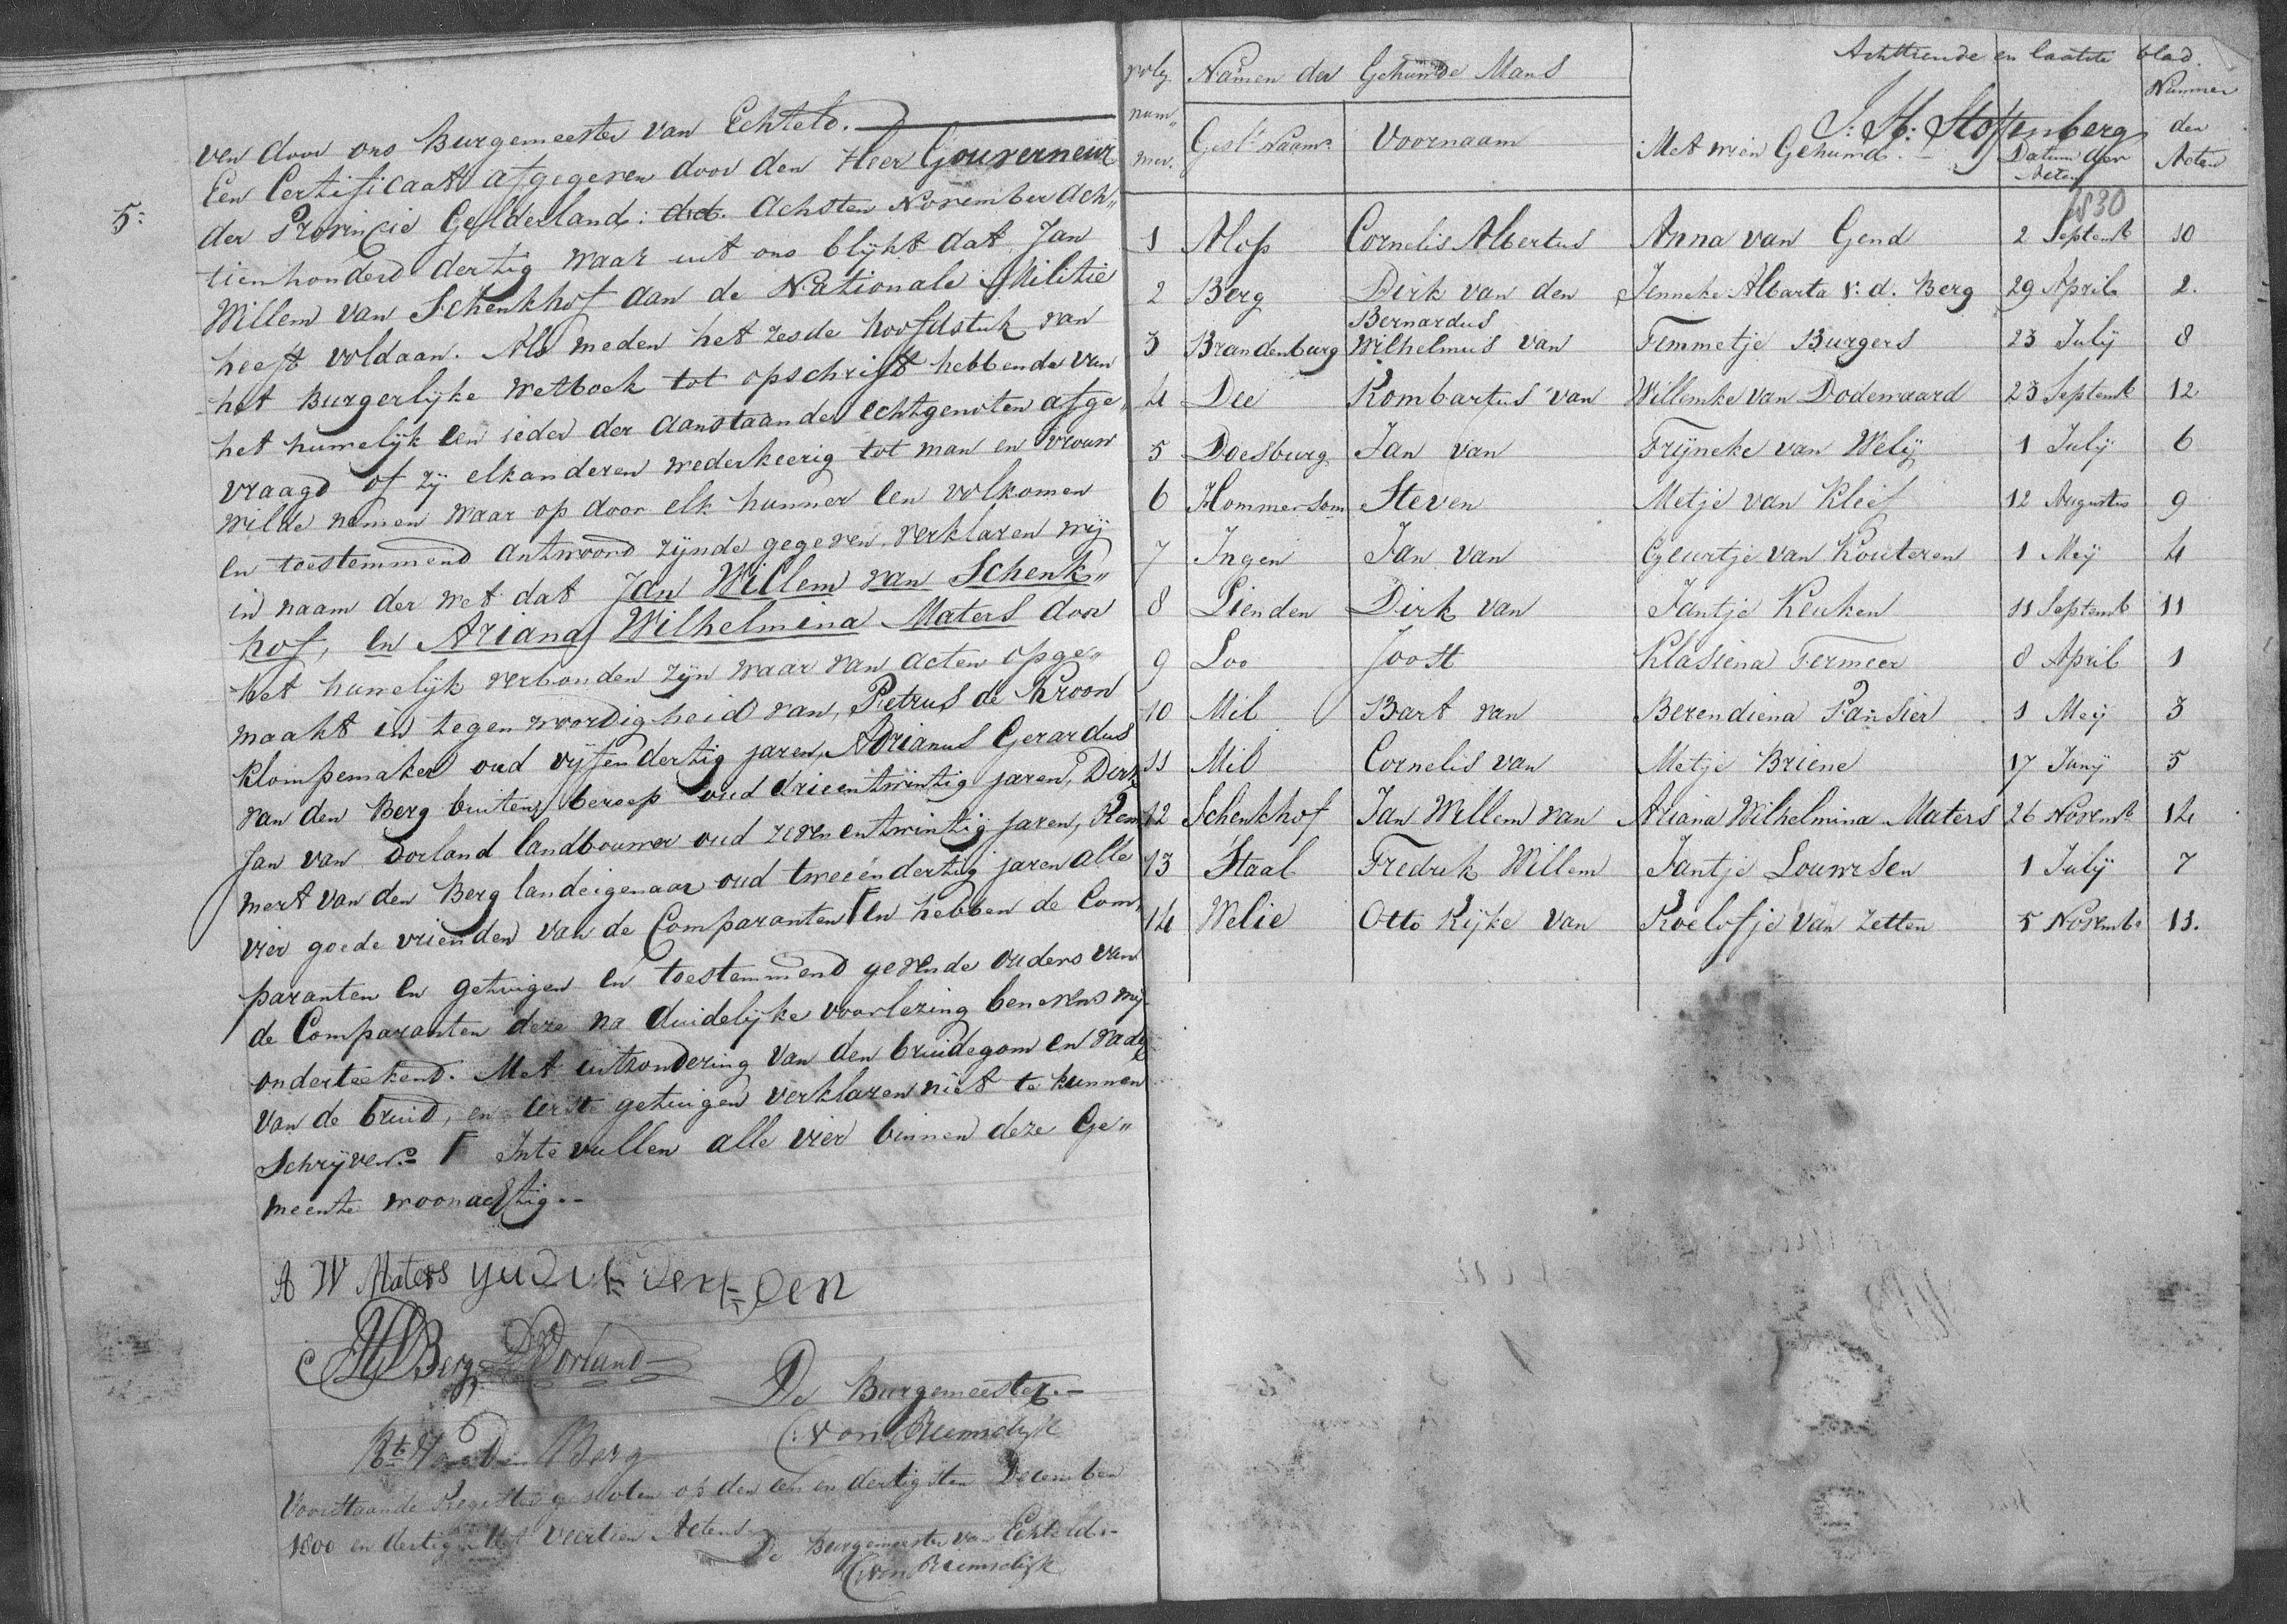 ven door ons Burgemeester van Echteld.
5: Een Certificaat afgegeven door den Heer Gouverneur
der Provincie Gelderland: d.d. Achsten November ach„
tienhonderd dertig waar uit ons blijkt dat Jan
Willem van Schenkhof aan de Nationale Militie
heeft voldaan. Als meden het zesde hoofdstuk van
het Burgerlijke Wetboek tot opschrift hebbende van
het huwelijk Een ieder der aanstaander echtgenoten afge„
vraagd of zij elkanderen wederkeerig tot man en vrouw
wilde nemen waar op door elk hunner een volkomen
en toestemmend antwoord zijnde gegeven, verklaren wij
in naam der wet dat Jan Willem van Schenk„
hof, en Ariana Wilhelmina Maters door
het huwelijk verbonden zijn waar van acten opge„
maakt in tegenwoordigheid van, Petrus de Kroon
klompemaker oud vijfendertig jaren, Adrianus Gerardus
van den Berg buiten beroep oud drieentwintig jaren, Dirk
Jan van Dorland landbouwer oud zevenentwintig jaren, Rem
mert van den Berg landeigenaar oud tweeendertig jaren alle
vier goede vrienden van de Comparanten F En hebben de Com„
paranten en getuigen en toestemmend gevende ouders van
de Comparanten deze na duidelijke voorlezing benevens mij
onderteekend. Met uitzondering van den bruidegom en vader
van de bruid, en eerste getuigen verklaren niet te kunnen
Schrijven. F Inte vullen alle vier binnen deze Ge„
meente woonachtig.
A W Maters
Berg Dorland
De Burgemeester.
van Riemsdijk
Rt Van Den Berg
Voorstaande Register gesloten op den een en dertigsten December
1800 en dertig met Veertien Actens
De Burgemeester van Echteld.
van Riemsdijk
Achttiende en laatste blad.
J: H: Stoffenberg
volg nummer. Namen der Gehuwde Mans Met wien Gehuwd. Datum der Acten Nummer der Acten
Gesl. Naam Voornaam
1830
1 Alofs Cornelis Albertus Anna van Gend 2 Septemb 10
2 Berg Dirk van den Jenneke Albarta v. d. Berg 29 April 2.
3 Brandenburg Bernardus Wilhelmus van Femmetje Burgers 23 July 8
4 Dee Rombartus van Willemke van Dodewaard 23 Septemb 12
5 Doesburg Jan van Frijneke van Welij 1 July 6
6 Hommersom Steven Metje van Klief 12 Augustus 9
7 Ingen Jan van Geurtje van Kouteren 1 Meij 4
8 Lienden Dirk van Jantje Keuken 11 Septemb 11
9 Loo Joost Klasiena Fermeer 8 April 1
10 Mil Bart van Berendiena Pansier 1 Meij 3
11 Mil Cornelis van Metje Briene 17 Junij 5
12 Schenkhof Jan Willem van Ariana Wilhelmina Maters 26 Novemb 14
13 Staal Fredrik Willem Jantje Louwrsen 1 July 7
14 Welie Otto Rijke van Roelofje van Zetten 5 Novemb. 13.